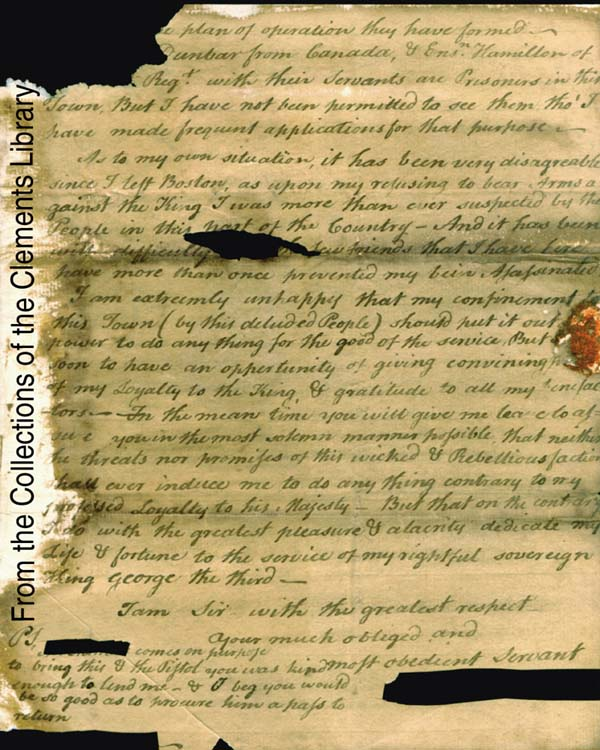 From the Collections of the Clements Library
plan of operation they have formed —
Dunbar from Canada, & Ensn. Hamilton of
Regt. with their Servants are Prisoners in this
Town, But I have not been permitted to see them tho' I
have made frequent applications for that purpose —
As to my own situation, it has been very disagreeable
since I left Boston, as upon my refusing to bear Arms a
gainst the King I was more than ever suspected by the
People in this part of the Country — And it has been
with difficulty few friends that I have here
have more than once prevented my bein Assasinated
I am extreemly unhappy that my confinement
this Town (by this deluded People) should put it out
power to do any thing for the good of the service, But
soon to have an opportunity of giving convining
of my Loyalty to the King, & gratitude to all my
tors — In the mean time you will give me to as-
you in the most solemn manner possible, that neither
threats nor promises of this wicked & Rebellious faction
shall ever induce me to do any thing contrary to my
professed Loyalty to his Majesty — But that on the contrary
I do with the greatest pleasure & alacrity dedicate my
Life & fortune to the service of my rightful sovereign
King George the third —
I am Sir with the greatest respect
Your much obliged and
most obedient Servant
P.S.
comes on purpose
to bring this & the Pistol you was kind
enough to lend me — & I beg you would
be so good as to procure him a pass to
return